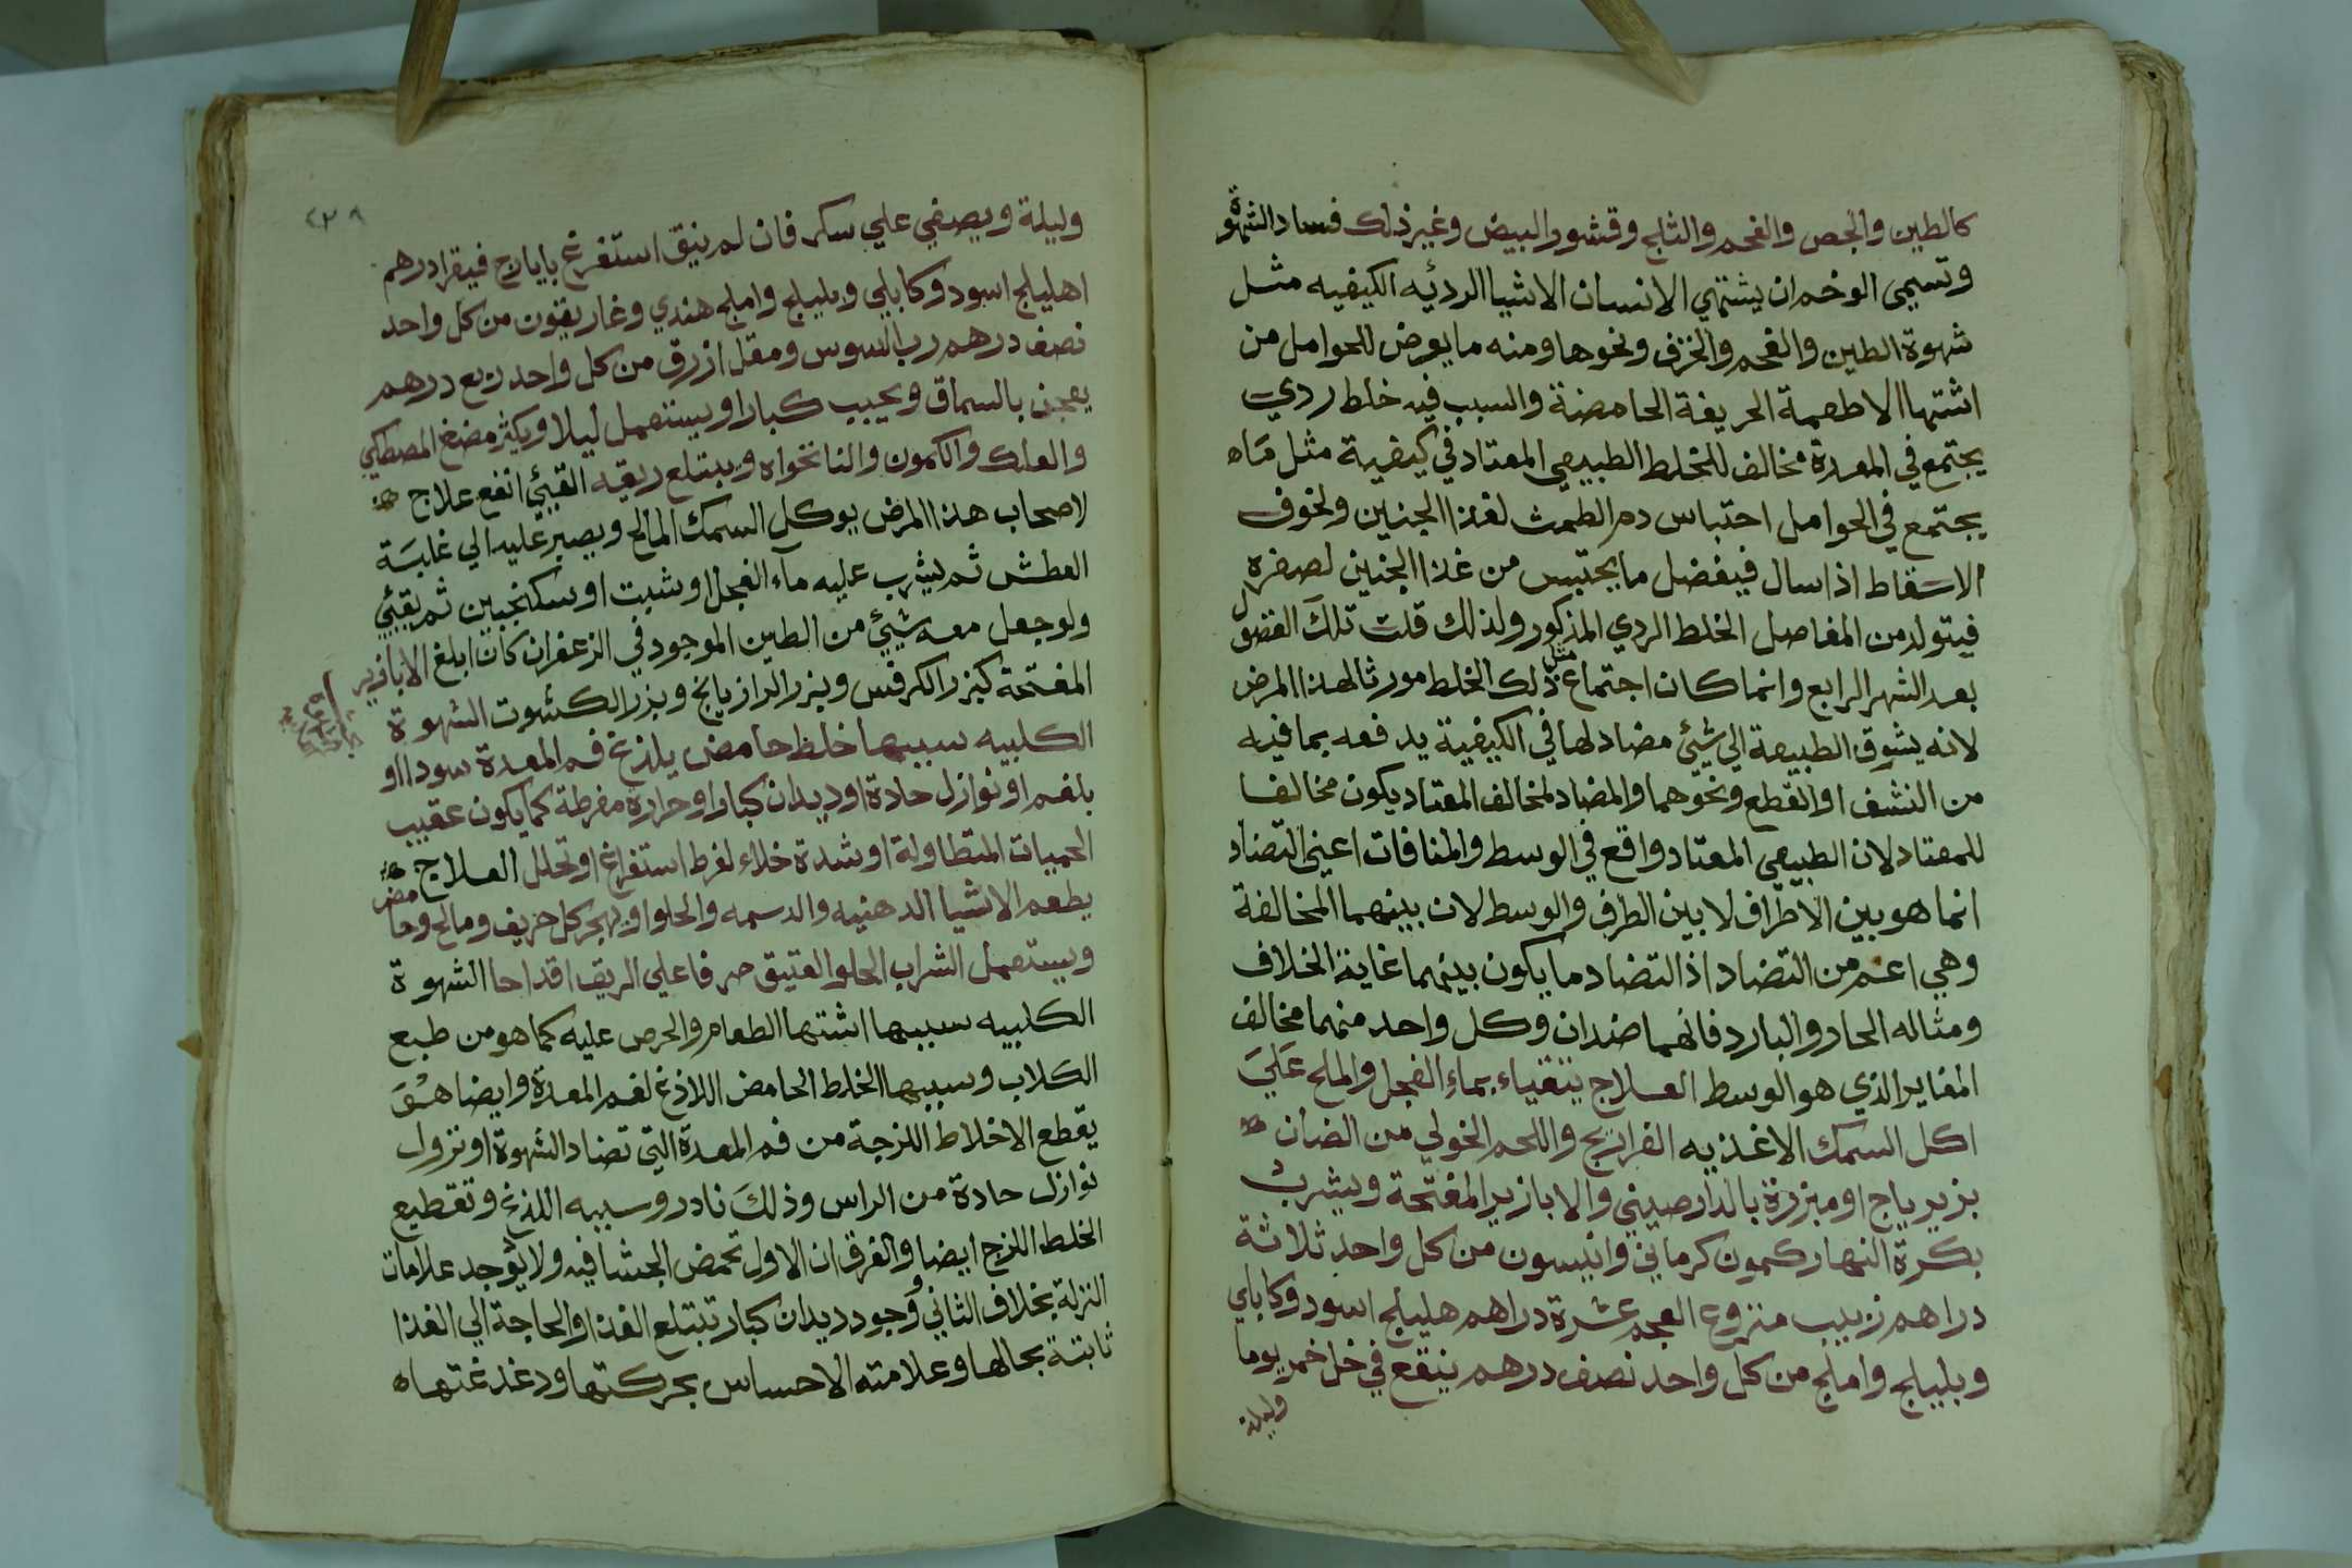 كالطين والجص والفحم والثلج وقشور البيض وغير ذلك فساد الشهوة
وتسمى الوخم ان يشتهي الانسان الاشيا الرديّه الكيفيه مثل
شهوة الطين والفحم والخزف ونحوها ومنه ما يعرض للحوامل من
اشتها الاطعمة الحريفة الحامضة والسبب فيه خلط ردي
يجتمع في المعدة مخالف للخلط الطبيعي المعتاد في كيفية مثل مَاه
يجتمع في الحوامل احتباس دم الطمث لغذا الجنين ولخوف
الاسقاط اذا سال فيفضل ما يحتبس من غذا الجنين لصغره
فيتولد من المفاصل الخلط الردي المذكور ولذلك قلت تلك الفضول
بعد الشهر الرابع وانما كان اجتماع مثل ذلك الخلط مورثا لهذا المرض
لانه يشوق الطبيعة الي شيئ مضاد لها في الكيفية يدفعه بما فيه
من النشف او القطع ونحوهما والمضاد لمخالف المعتاد يكون مخالفا
للمعتاد لان الطبيعي المعتاد واقع في الوسط والمنافات اعني التضاد
انما هو بين الاطراف لا بين الطرف والوسط لان بينهما المخالفة
وهي اعم من التضاد اذ التضاد ما يكون بينهما غاية الخلاف
ومثاله الحار والبارد فانهما ضدان وكل واحد منهما مخالف
المغاير الذي هو الوسط العلاج يتقياء بماء الفجل والملح عَليَ
اكل السمك الاغذيه الفراريج واللحم الخولي من الضان
بزيرباج او مبزرة بالدارصيني والابازير المفتحة ويشرب
بكرة النهار كمون كرماني وانيسون من كل واحد ثلاثة
دراهم زبيب منزوع العجم عشرة دراهم هليلج اسود وكابلي
وبليلج واملج من كل واحد نصف درهم ينقع في خل خمر يوما
وليلة
٢٣٨
وليلة ويصفي علي سكر فان لم ينق استفرغ بايارج فيقرا درهم
اهليلج اسود وكابلي وبليلج واملج هندي وغاريقون من كل واحد
نصف درهم رب السوس ومقل ازرق من كل واحد ربع درهم
يعجن بالسماق ويحبب كبارا ويستعمل ليلا ويكثر مضغ المصطكي
والعلك والكمون والنانخواه ويبتلع ريقه القيئ انفع علاج
لاصحاب هذا المرض يوكل السمك المالح ويصبر عليه الي غلبَة
العطش ثم يشرب عليه مآء الفجل او شبت او سكنجبين ثم يقيئ
ولو جعل معه شيئ من الطين الموجود في الزعفران كان ابلغ الابازير
المفتحة كبزر الكرفس وبزر الرازيانج وبزر الكشوت الشهوة
الكلبيه سببها خلط حامض يلذغ فم المعدة سودا او
بلغم او نوازل حادة او ديدان كبار او حرارة مفرطة كما يكون عقيب
الحميات المتطاولة او شدة خلاء لفرط استفراغ او تحلل العلاج
يطعم الاشيا الدهنيه والدسمه والحلوا ويهجر كل حريف ومالح وحامض
ويستعمل الشراب الحلو العتيق صرفا علي الريق اقداحا الشهوة
الكلبيه سببها اشتها الطعام والحرص عليه كما هو من طبع
الكلاب وسببها الخلط الحامض اللاذغ لفم المعدة وايضا هوَ
يقطع الاخلاط اللزجة من فم المعدة التي تضاد الشهوة او نزول
نوازل حادة من الراس وذلكَ نادر وسببه اللذغ وتقطيع
الخلط اللزج ايضا والفرق ان الاول تحمض الجشا فيه ولا يوجد علامات
النزلة بخلاف الثاني وَجود ديدان كبار تبتلع الغذا والحاجة الي الغذا
ثابتة بحالها وعلامته الاحساس بحركتها ودغدغتها ه